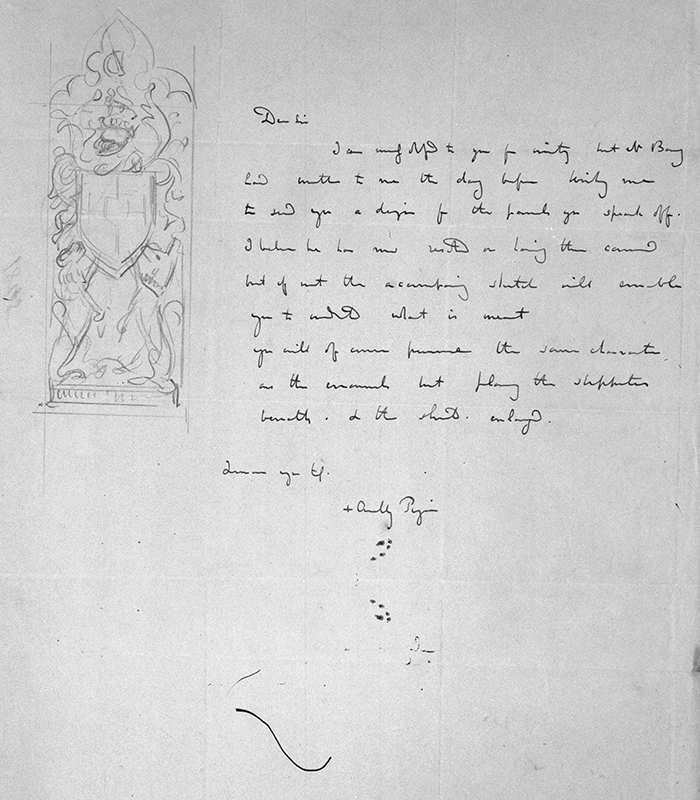 Dear Sir
I am much obliged to you for writing but Mr Barry
had written to me the day before desiring me
to send you a design for the panels you speak off.
I believe he has now on having them carved
but if not the accompanying sketch will enable
you to what is meant
you will of course preserve the same character
as the but placing the supporters
beneath. & the shield. enlarged.
yours
+ A Pugin